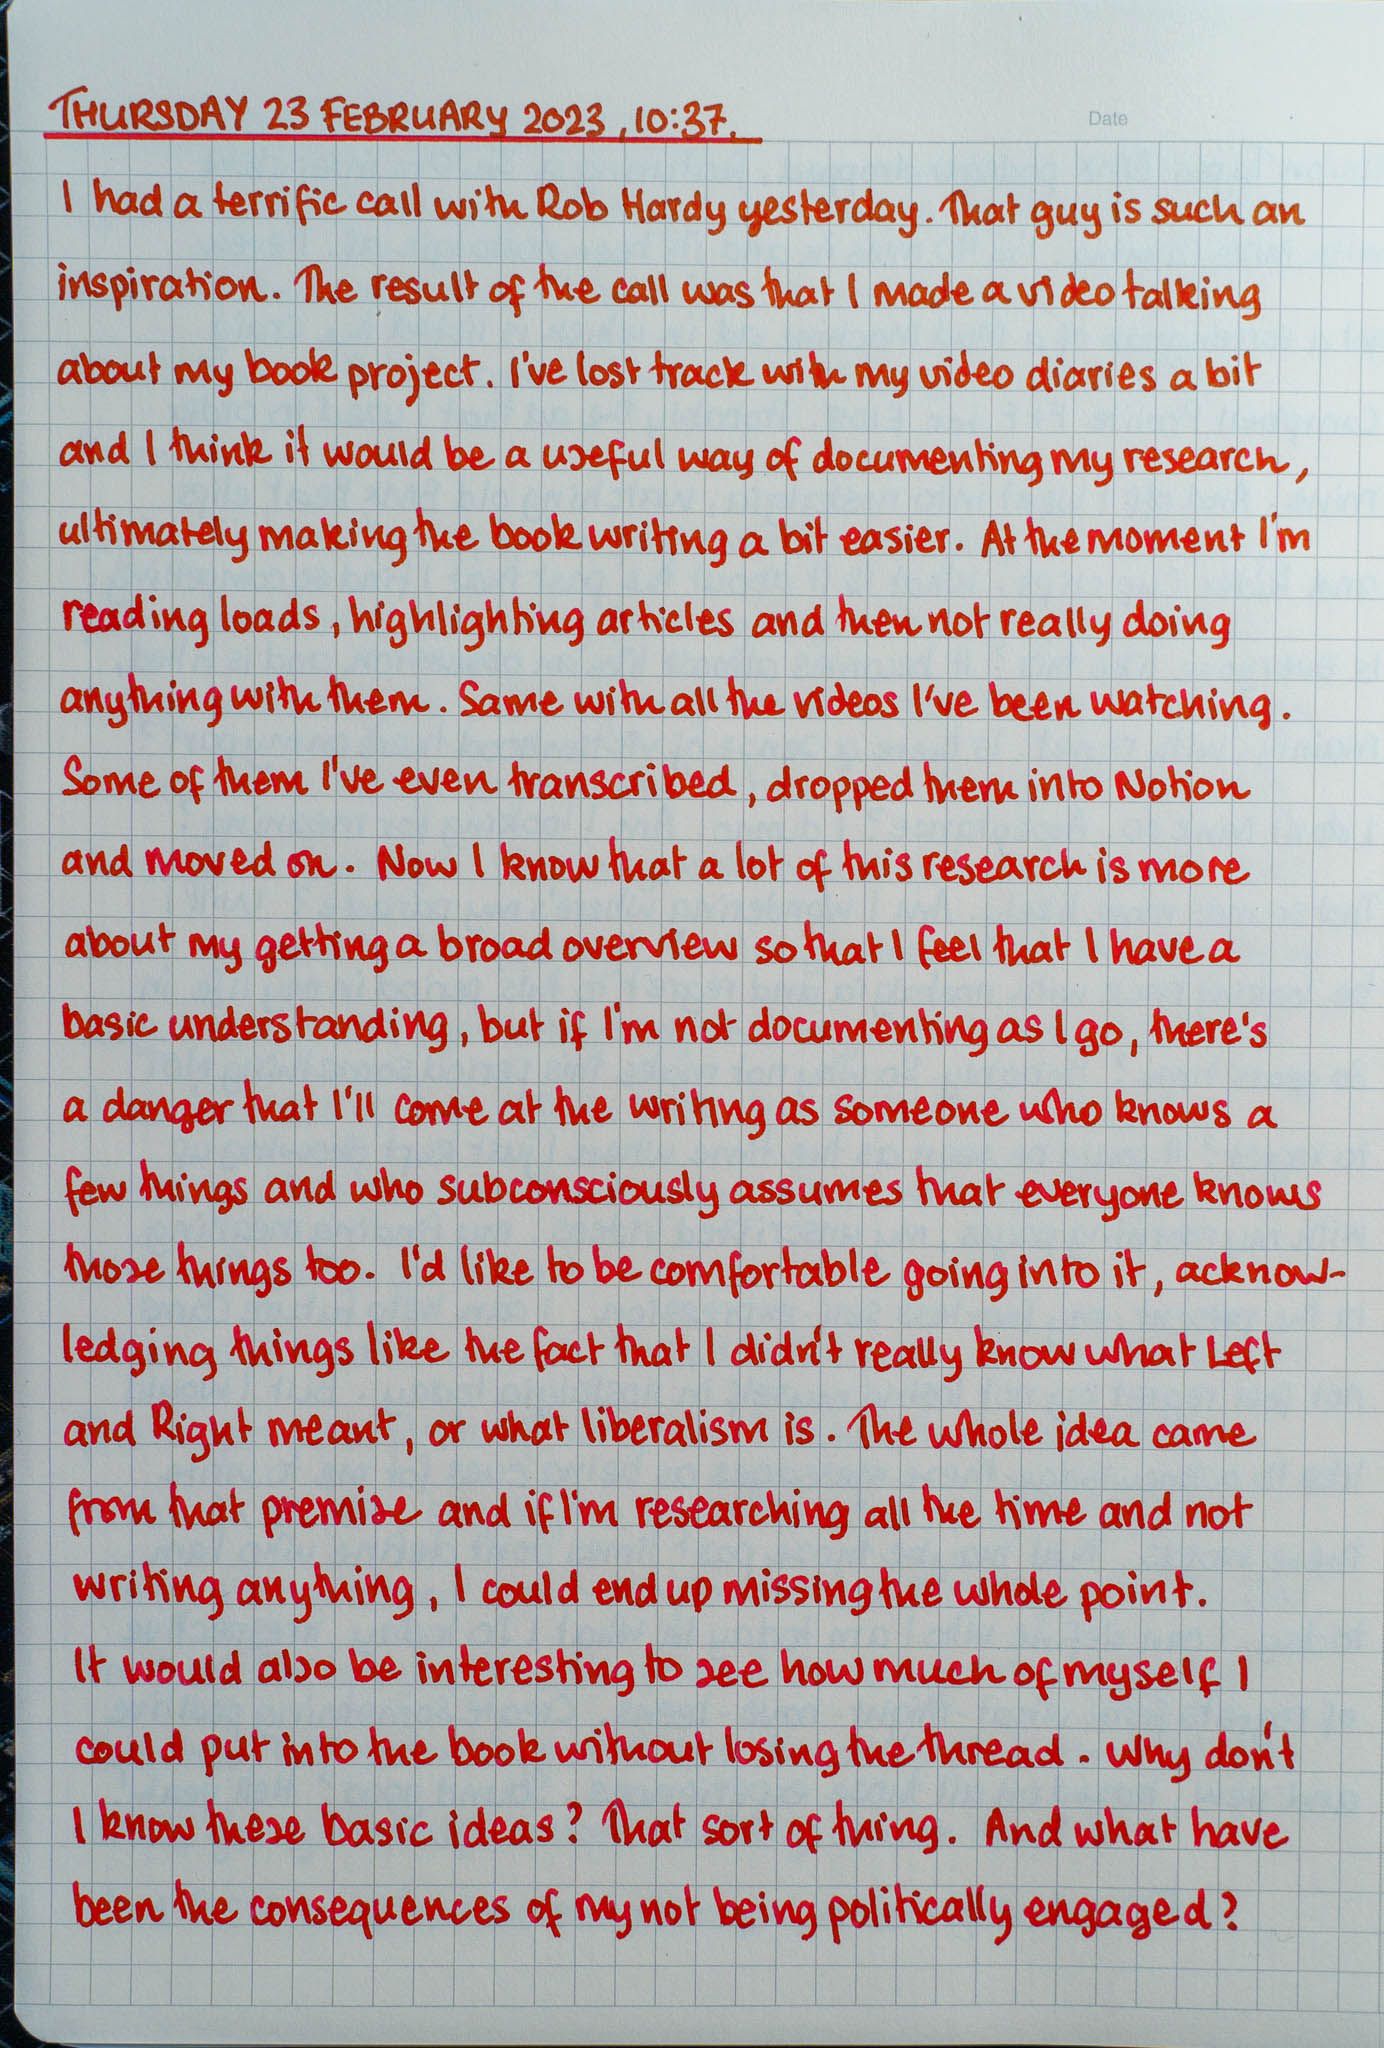 THURSDAY 23 FEBRUARY 2023, 10:37.
Date
I had a terrific call with Rob Hardy yesterday. That guy is such an
inspiration. The result of the call was that I made a video talking
about my book project. I've lost track with my video diaries a bit
and I think it would be a useful way of documenting my research,
ultimately making the book writing a bit easier. At the moment I'm
reading loads, highlighting articles and then not really doing
anything with them. Same with all the videos I've been watching.
Some of them I've even transcribed, dropped them into Notion
and moved on. Now I know that a lot of this research is more
about my getting a broad overview so that I feel that I have a
basic understanding, but if I'm not documenting as I go, there's
a danger that I'll come at the writing as someone who knows a
few things and who subconsciously assumes that everyone knows
those things too. I'd like to be comfortable going into it, acknow-
ledging things like the fact that I didn't really know what Left
and Right meant, or what liberalism is. The whole idea came
from that premise and if I'm researching all the time and not
writing anything, I could end up missing the whole point.
It would also be interesting to see how much of myself I
could put into the book without losing the thread. Why don't
I know these basic ideas? That sort of thing. And what have
been the consequences of my not being politically engaged?